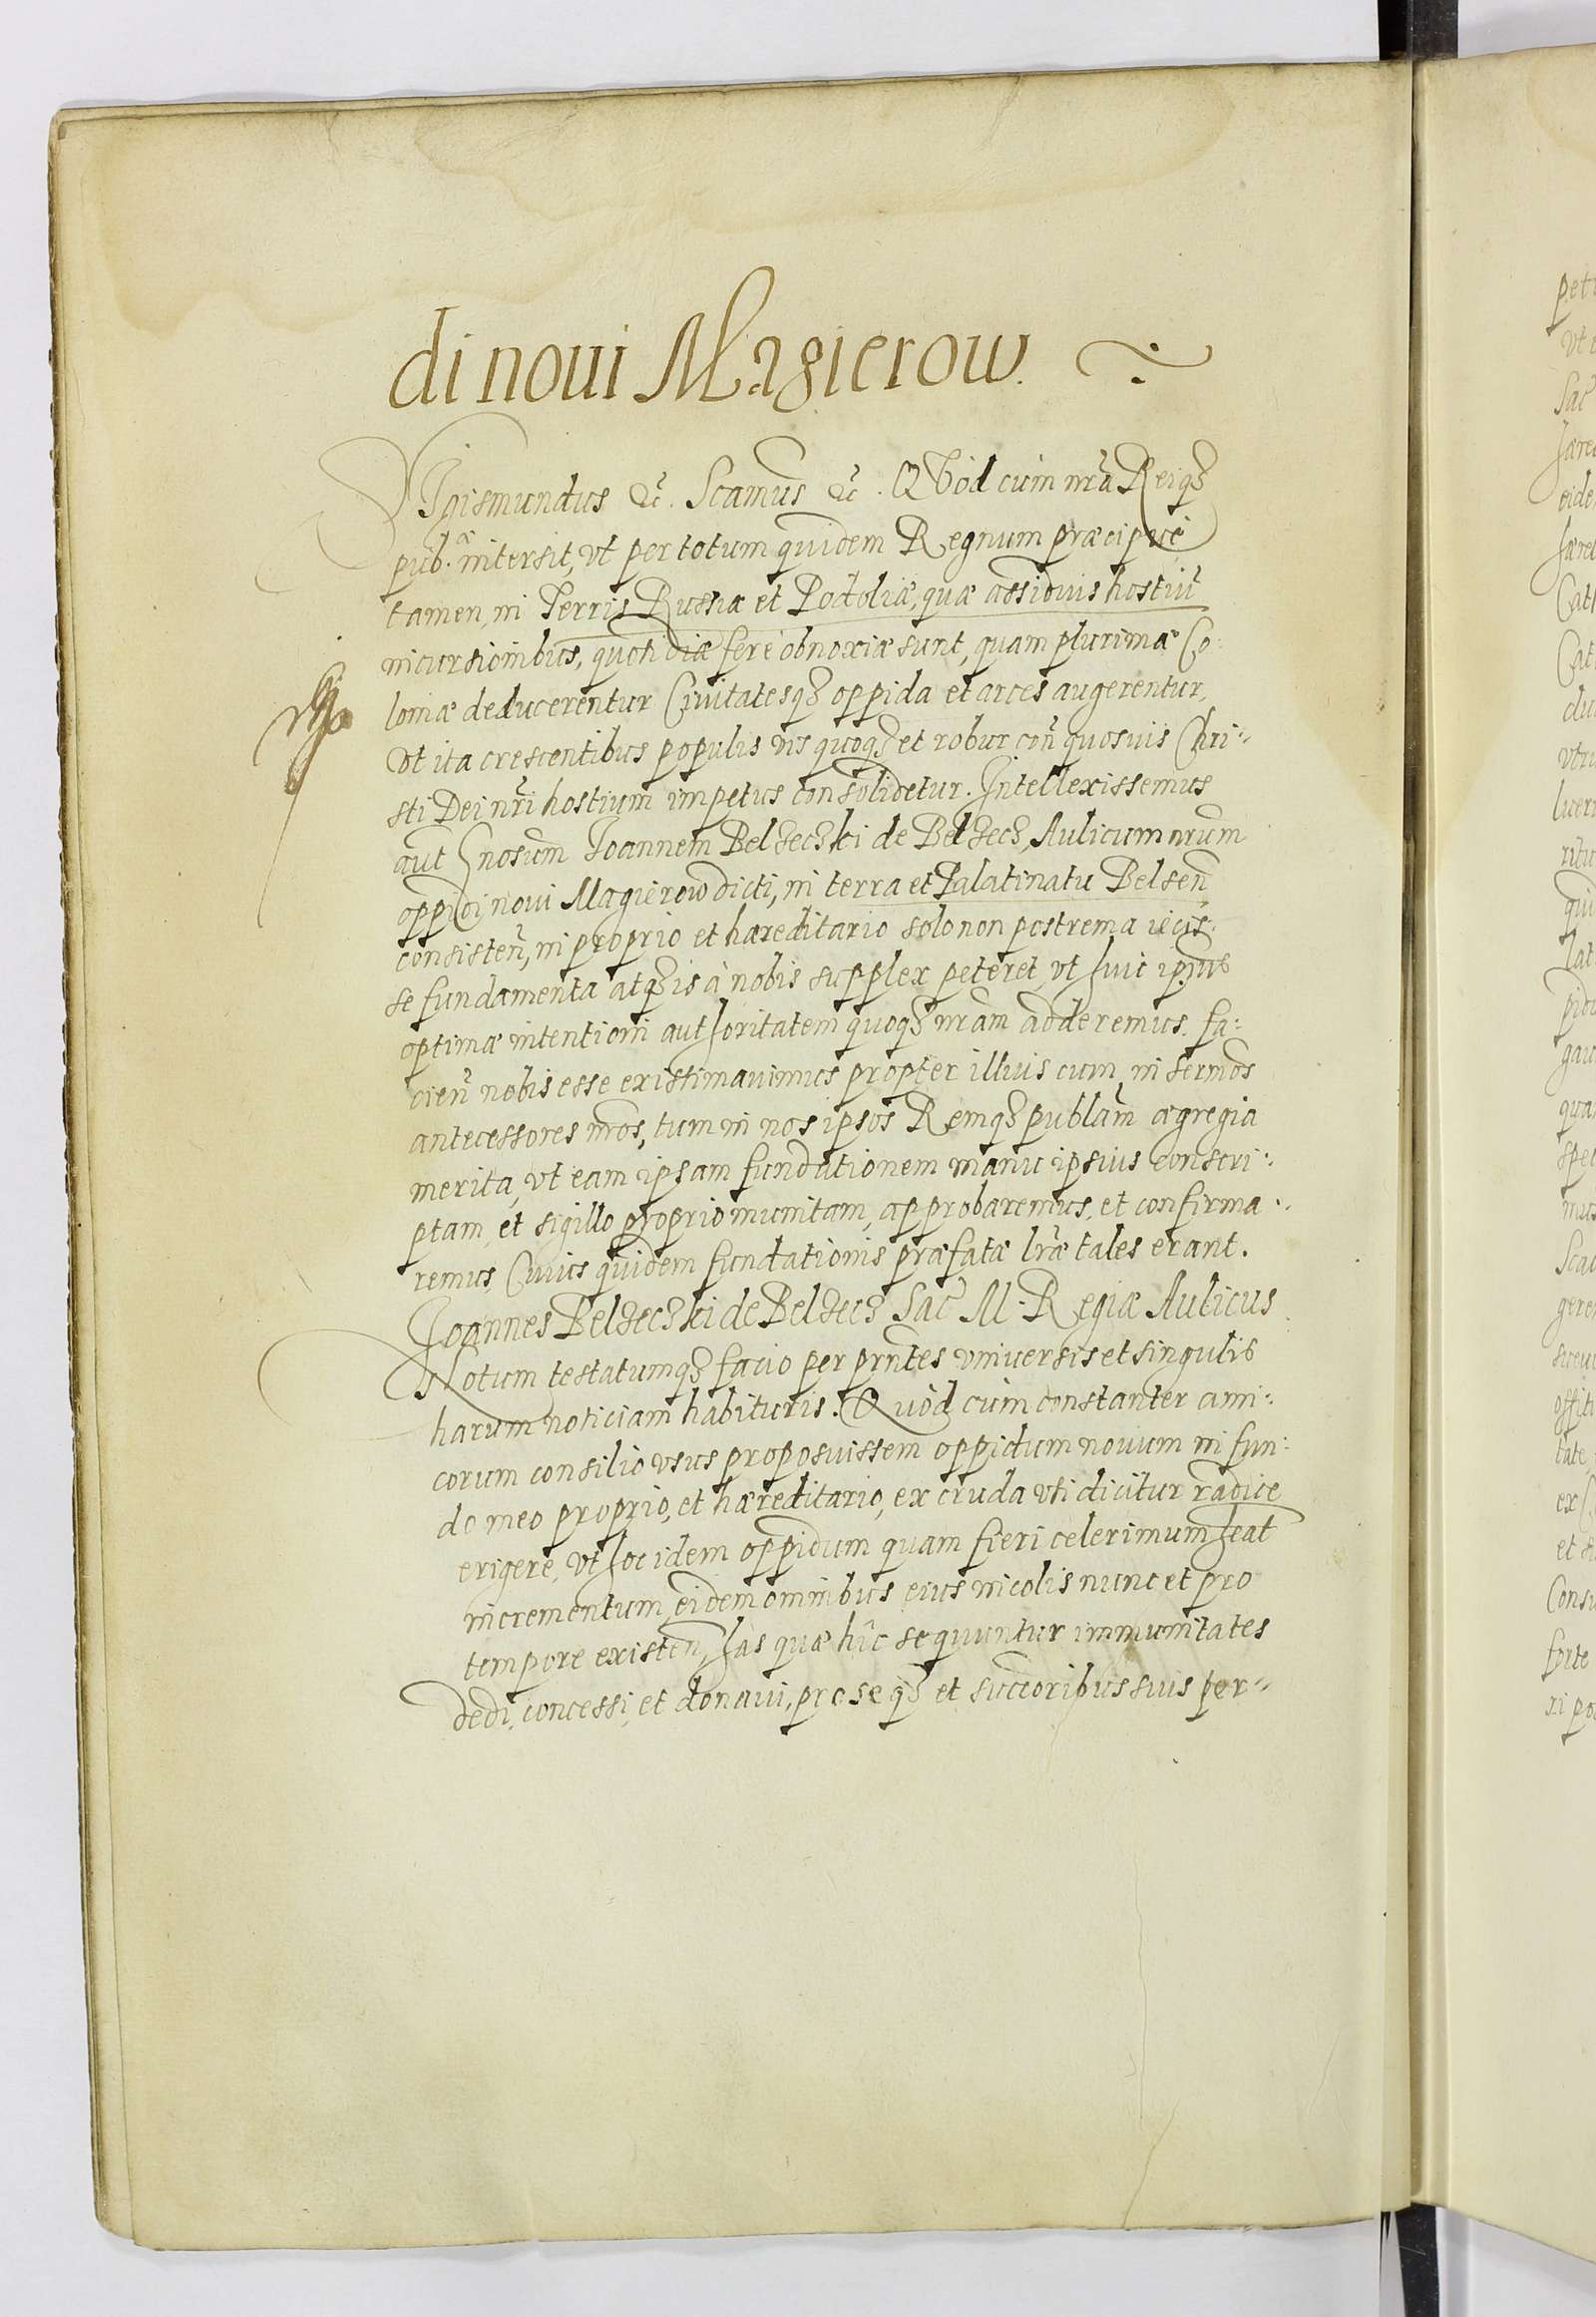 di noui Magierow.
Sigismundus &c. Scamus &c. QVod cum nrã Reiqȝ
pub.ᵃ intersit, vt per totum quidem Regnum præcipuè
tamen, in Terris Russiæ et Podoliæ, quæ assiduis hostiũ
incursionibus, quotidiæ ferè obnoxiæ sunt, quam plurimæ Co-
loniæ deducerentur Civitatesqȝ oppida et arces augerentur,
Vt ita crescentibus populis vis quoqȝ et robur coñ quosuis Chri-
sti Dei nr̃i hostium impetus consolidetur. Intellexissemus
aũt Gnosum Joannem Belzeczki de Belzecz, Aulicum nrũm
oppidi, noui Magierow dicti, in terra et Palatinatu Belseñ
consisteñ, in proprio et hæreditario solo non postrema iecis-
se fundamenta atqȝ is à nobis supplex peteret, vt huic ipsius
optimæ intentioni authoritatem quoqȝ nrãm adderemus. Fa-
cieñ nobis esse existimauimus propter illius cum, in sermõs
antecessores nrõs, tum in nos ipsos Remqȝ publãm ægregia
merita, vt eam ipsam fundationem manu ipsius conscri-
ptam, et sigillo proprio munitam, approbaremus, et confirma-
remus, Cuius quidem fundationis præfatæ lr̃æ tales erant.
Joannes Belzeczki de Belzecz Sac̃ M. Regiæ Aulicus
Notum testatumqȝ facio per prñtes vniuersis et singulis
harum noticiam habituris. Quòd cùm constanter ami-
corum consilio vsus proposuissem oppidum nouum in fun-
do meo proprio, et hæreditario, ex cruda vti dicitur radice
erigere, vt hoc idem oppidum quam fieri celerimum heat
incrementum, eidem omnibus eius incolis nunc et pro
tempore existeñ, has quæ hîc sequuntur immunitates
dedi, concessi, et donaui, pro se qȝ et succoribus suis per-